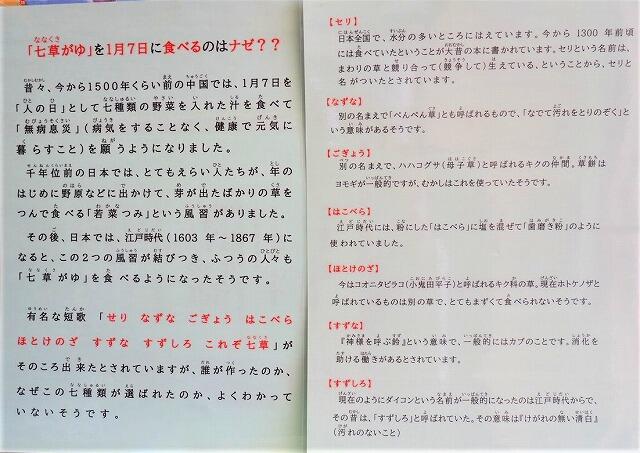 「七草がゆ」を1月7日に食べるのはナゼ？？
昔々、今から1500年くらい前の中国では、1月7日を
「人の日」として七種類の野菜を入れた汁を食べて
「無病息災」(病気をすることなく、健康で元気に
暮らすこと)を願うようになりました。
千年位前の日本では、とてもえらい人たちが、年の
はじめに野原などに出かけて、芽が出たばかりの草を
つんで食べる「若菜つみ」という風習がありました。
その後、日本では、江戸時代(1603 年～1867 年)に
なると、この2つの風習が結びつき、ふつうの人々も
「七草がゆ」を食べるようになったそうです。
有名な短歌「せり なずな ごぎょう はこべら
ほとけのざ すずな すずしろ これぞ七草」が
そのころ出来たとされていますが、誰が作ったのか、
なぜこの七種類が選ばれたのか、よくわかって
いないそうです。
【セリ】
日本全国で、水分の多いところにはえています。今から 1300 年前頃
には食べていたということが大昔の本に書かれています。セリという名前は、
まわりの草と競り合って(競争して)生えている、ということから、セリと
名がついたとされています。
【なずな】
別の名まえで「ぺんぺん草」とも呼ばれるもので、「なでて汚れをとりのぞく」と
いう意味があるそうです。
【ごぎょう】
別の名まえで、ハハコグサ(母子草)と呼ばれるキクの仲間。草餅は
ヨモギが一般的ですが、むかしはこれを使っていたそうです。
【はこべら】
江戸時代には、粉にした「はこべら」に塩を混ぜて「歯磨き粉」のように
使われていました。
【ほとけのざ】
今はコオニタビラコ(小鬼田平子)と呼ばれるキク科の草。現在ホトケノザと
呼ばれているものは別の草で、とてもまずくて食べられないそうです。
【すずな】
『神様を呼ぶ鈴』という意味で、一般的にはカブのことです。消化を
助ける働きがあるとされています。
【すずしろ】
現在のようにダイコンという名前が一般的になったのは江戸時代からで、
その昔は、「すずしろ」と呼ばれていた。その意味は『けがれの無い清白』
(汚れのないこと)